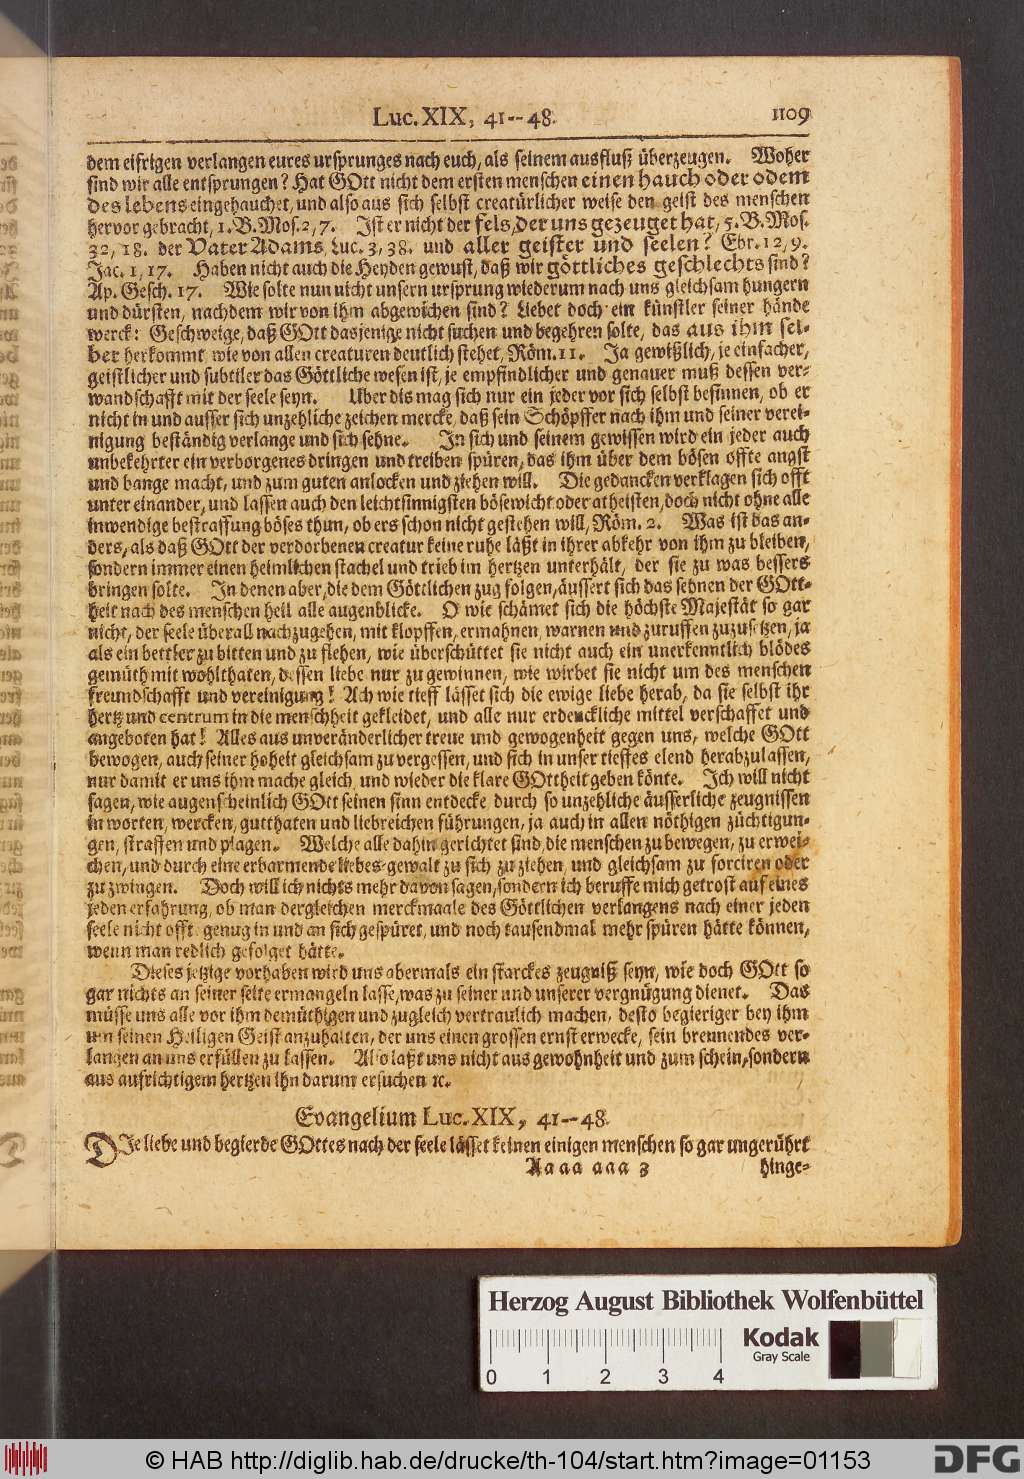 Luc. XIX, 41--48. 1109
dem eifrigen verlangen eures ursprunges nach euch, als seinem ausfluß überzeugen. Woher
sind wir alle entsprungen? Hat GOtt nicht dem ersten menschen einen hauch oder odem
des lebens eingehauchet, und also aus sich selbst creatürlicher weise den geist des menschen
hervor gebracht, 1. B. Mos. 2, 7. Ist er nicht der fels, der uns gezeuget hat, 5. B. Mos.
32, 18. der Vater Adams, Luc. 3, 38. und aller geister und seelen? Ebr. 12, 9.
Jac. 1, 17. Haben nicht auch die Heyden gewust, daß wir göttliches geschlechts sind?
Ap. Gesch. 17. Wie solte nun nicht unsern ursprung wiederum nach uns gleichsam hungern
und dürsten, nachdem wir von ihm abgewichen sind? Liebet doch ein künstler seiner hände
werck: Geschweige, daß GOtt dasjenige nicht suchen und begehren solte, das aus ihm sel-
ber herkommt, wie von allen creaturen deutlich stehet, Röm. 11. Ja gewißlich, je einfacher,
geistlicher und subtiler das Göttliche wesen ist, je empfindlicher und genauer muß dessen ver-
wandschafft mit der seele seyn. Uber dis mag sich nur ein jeder vor sich selbst besinnen, ob er
nicht in und ausser sich unzehliche zeichen mercke, daß sein Schöpffer nach ihm und seiner verei-
nigung beständig verlange und sich sehne. In sich und seinem gewissen wird ein jeder auch
unbekehrter ein verborgenes dringen und treiben spüren, das ihm über dem bösen offte angst
und bange macht, und zum guten anlocken und ziehen will. Die gedancken verklagen sich offt
unter einander, und lassen auch den leichtsinnigsten bösewicht oder atheisten, doch nicht ohne alle
inwendige bestraffung böses thun, ob ers schon nicht gestehen will, Röm. 2. Was ist das an-
ders, als daß GOtt der verdorbenen creatur keine ruhe läßt in ihrer abkehr von ihm zu bleiben,
sondern immer einen heimlichen stachel und trieb im hertzen unterhält, der sie zu was bessers
bringen solte. In denen aber, die dem Göttlichen zug folgen, äussert sich das sehnen der GOtt-
heit nach des menschen heil alle augenblicke. O wie schämet sich die höchste Majestät so gar
nicht, der seele überall nachzugehen, mit klopffen, ermahnen, warnen und zuruffen zuzusetzen, ja
als ein bettler zu bitten und zu flehen, wie überschüttet sie nicht auch ein unerkenntlich blödes
gemüth mit wohlthaten, dessen liebe nur zu gewinnen, wie wirbet sie nicht um des menschen
freundschafft und vereinigung! Ach wie tieff lässet sich die ewige liebe herab, da sie selbst ihr
hertz und centrum in die menschheit gekleidet, und alle nur erdenckliche mittel verschaffet und
angeboten hat! Alles aus unveränderlicher treue und gewogenheit gegen uns, welche GOtt
bewogen, auch seiner hoheit gleichsam zu vergessen, und sich in unser tieffes elend herabzulassen,
nur damit er uns ihm mache gleich, und wieder die klare GOttheit geben könte. Ich will nicht
sagen, wie augenscheinlich GOtt seinen sinn entdecke durch so unzehliche äusserliche zeugnissen
in worten, wercken, gutthaten und liebreichen führungen, ja auch in allen nöthigen züchtigun-
gen, straffen und plagen. Welche alle dahin gerichtet sind, die menschen zu bewegen, zu erwei-
chen, und durch eine erbarmende liebes-gewalt zu sich zu ziehen, und gleichsam zu forciren oder
zu zwingen. Doch will ich nichts mehr davon sagen, sondern ich beruffe mich getrost auf eines
jeden erfahrung, ob man dergleichen merckmaale des Göttlichen verlangens nach einer jeden
seele nicht offt genug in und an sich gespüret, und noch tausendmal mehr spüren hätte können,
wenn man redlich gefolget hätte.
Dieses jetzige vorhaben wird uns abermals ein starckes zeugniß seyn, wie doch GOtt so
gar nichts an seiner seite ermangeln lasse, was zu seiner und unserer vergnügung dienet. Das
müsse uns alle vor ihm demüthigen und zugleich vertraulich machen, desto begieriger bey ihm
um seinen Heiligen Geist anzuhalten, der uns einen grossen ernst erwecke, sein brennendes ver-
langen an uns erfüllen zu lassen. Also laßt uns nicht aus gewohnheit und zum schein, sondern
aus aufrichtigem hertzen ihn darum ersuchen ꝛc.
Evangelium Luc. XIX, 41--48.
DIe liebe und begierde GOttes nach der seele lässet keinen einigen menschen so gar ungerührt
Aaaa aaa 3 hinge-
Herzog August Bibliothek Wolfenbüttel
Kodak
Gray Scale
0 1 2 3 4
© HAB http://diglib.hab.de/drucke/th-104/start.htm?image=01153
DFG